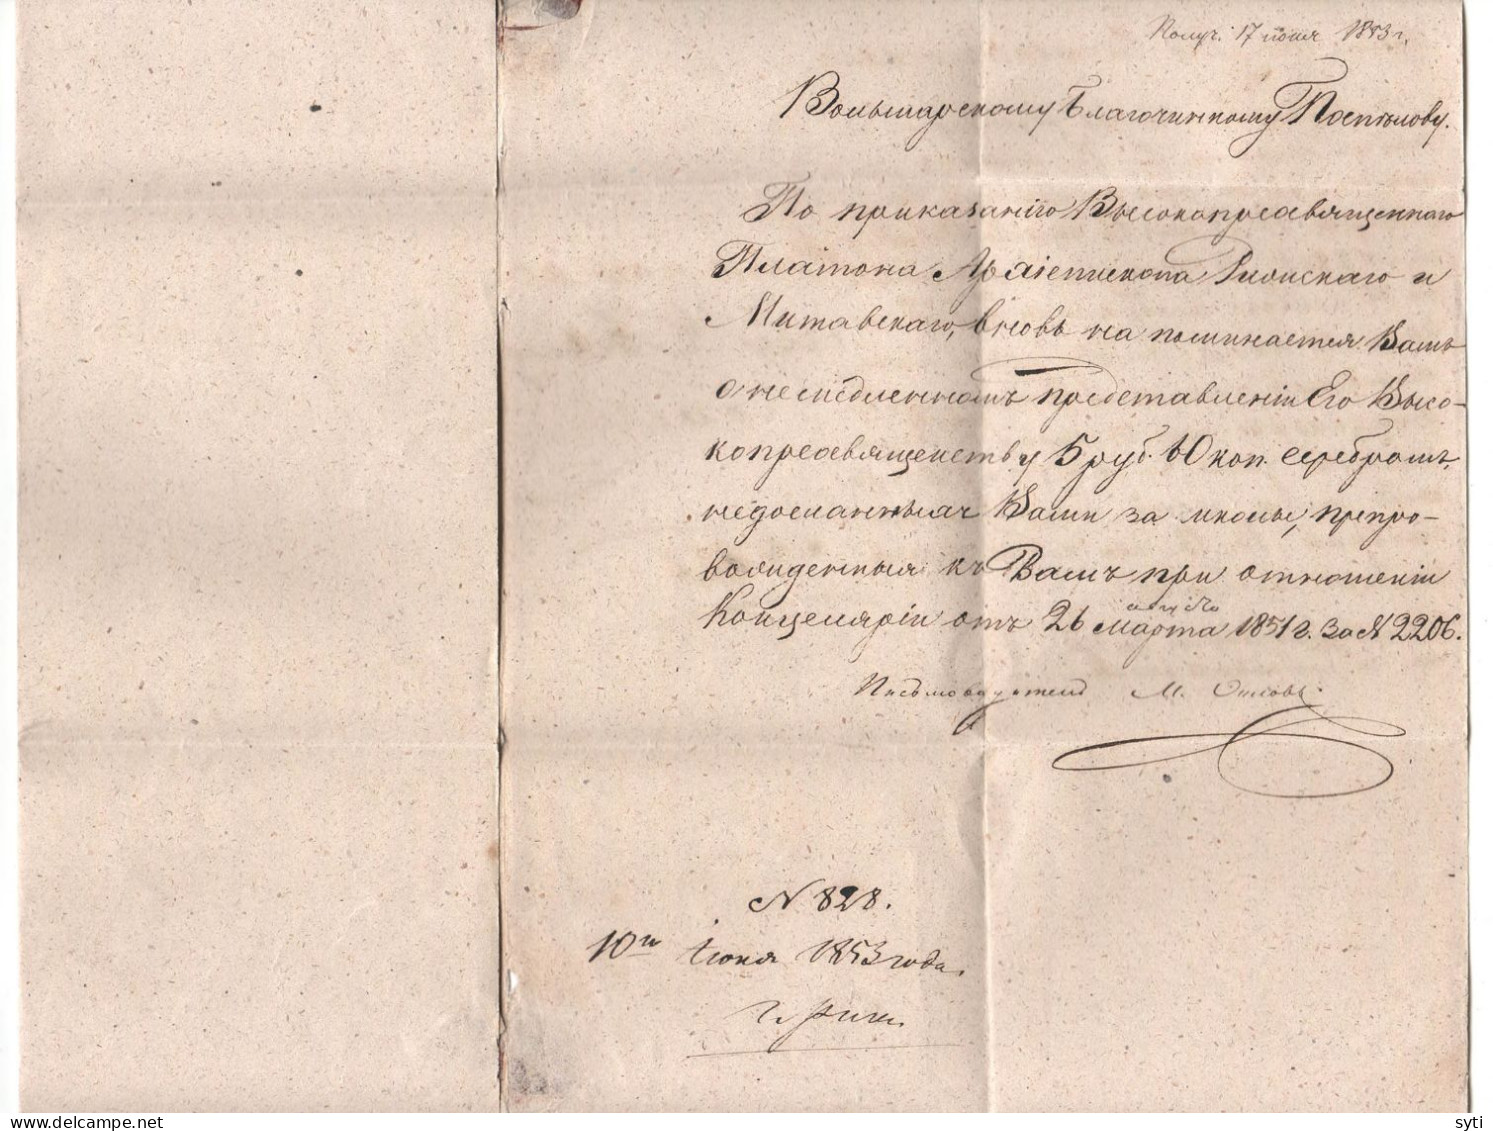 Получ. 17 июня 1853 г.
Вольмарскому Благочинному Поспѣлову.
По приказанію Высокопреосвященнаго
Платона Архіепископа Рижскаго и
Митавскаго, вновь напоминается Вамъ
о немедленномъ представленіи Его Высо-
копреосвященству 5 руб. 40 коп. серебромъ,
недосланныхъ Вами за школы, препро-
вожденныя къ Вамъ при отношеніи
Канцеляріи отъ 26 марта 1851 г. за № 2206.
Письмоводитель М.
N 828.
10го Іюня 1853 года.
г. Рига.
syti
delcampe.net